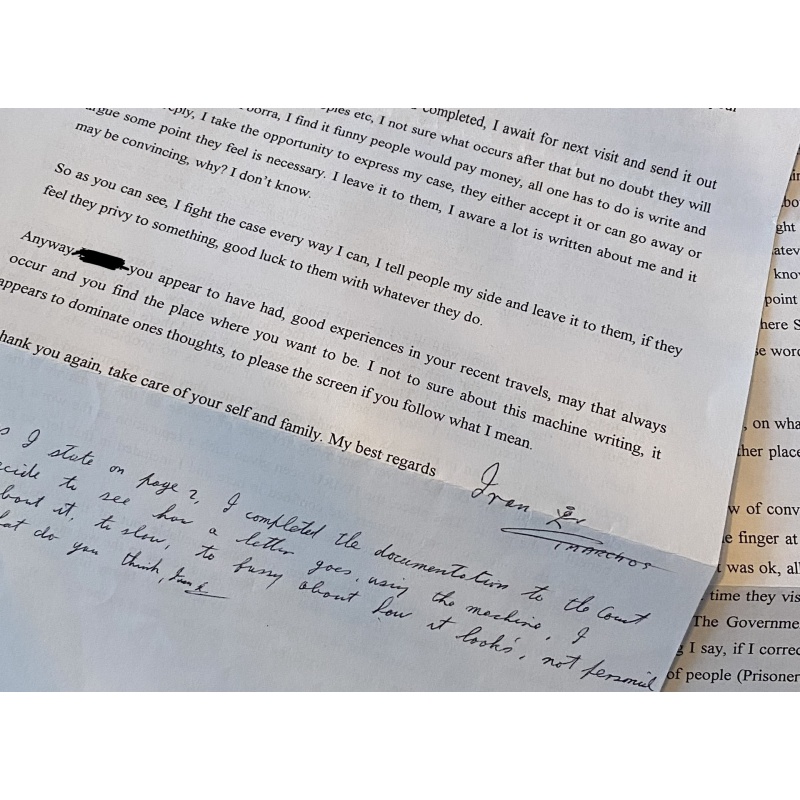 completed, I await for next visit and send it out
etc, I not sure what occurs after that but no doubt they will
I find it funny people would pay money, all one has to do is write and
I take the opportunity to express my case, they either accept it or can go away or
some point they feel is necessary. I leave it to them, I aware a lot is written about me and it
may be convincing, why? I don't know.
So as you can see, I fight the case every way I can, I tell people my side and leave it to them, if they
feel they privy to something, good luck to them with whatever they do.
Anyway you appear to have had, good experiences in your recent travels, may that always
occur and you find the place where you want to be. I not to sure about this machine writing, it
appears to dominate ones thoughts, to please the screen if you follow what I mean.
hank you again, take care of your self and family. My best regards
Ivan
I state on page 2, I completed the documentation to the Court
ecide to see how a letter goes, using the machine, I
bout it, to slow, to bussy about how it looks, not personal
at do you think, Ivan
ght
atev
know
point
here S
se word
, on wha
her place
w of conv
e finger at
was ok, al
time they vis
The Governme
I say, if I correc
of people (Prisoner